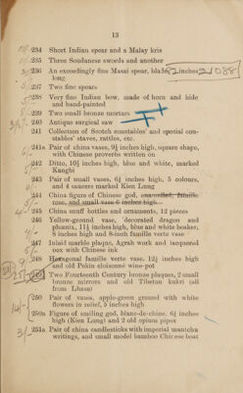 13
234 Short Indian spear and a Malay kris
235 Three Soudanese swords and another
236 An exceedingly fine Masai spear, blade 32 inches
long
237 Two fine spears
238 Very fine Indian bow, made of horn and hide
and hand-painted
239 Two small bronze mortars
240 Antique surgical saw
241 Collection of Scotch constables' and special con-
stables' staves, rattles, etc.
241a Pair of china vases, 9½ inches high, square shape,
with Chinese proverbs written on
242 Ditto, 10½ inches high, blue and white, marked
Kanghi
243 Pair of small vases, 6½ inches high, 5 colours,
and 4 saucers marked Kien Lung
244 China figure of Chinese god,
rose, and small vase 6 inches high
245 China snuff bottles and ornaments, 12 pieces
246 Yellow-ground vase, decorated dragon and
phœnix, 11½ inches high, blue and white beaker,
8 inches high and 8-inch famille verte vase
247 Inlaid marble plaque, Agrah work and lacquered
box with Chinese ink
248 Hexagonal famille verte vase, 12½ inches high
and old Pekin cloisonné wine-pot
249 Two Fourteenth Century bronze plaques, 2 small
bronze mirrors and old Tibetan kukri (all
from Lhassa)
250 Pair of vases, apple-green ground with white
flowers in relief, 5 inches high
250a Figure of smiling god, blanc-de-chine, 6½ inches
high (Kien Lung) and 2 old opium pipes
251a Pair of china candlesticks with imperial mantchu
writings, and small model bamboo Chinese boat